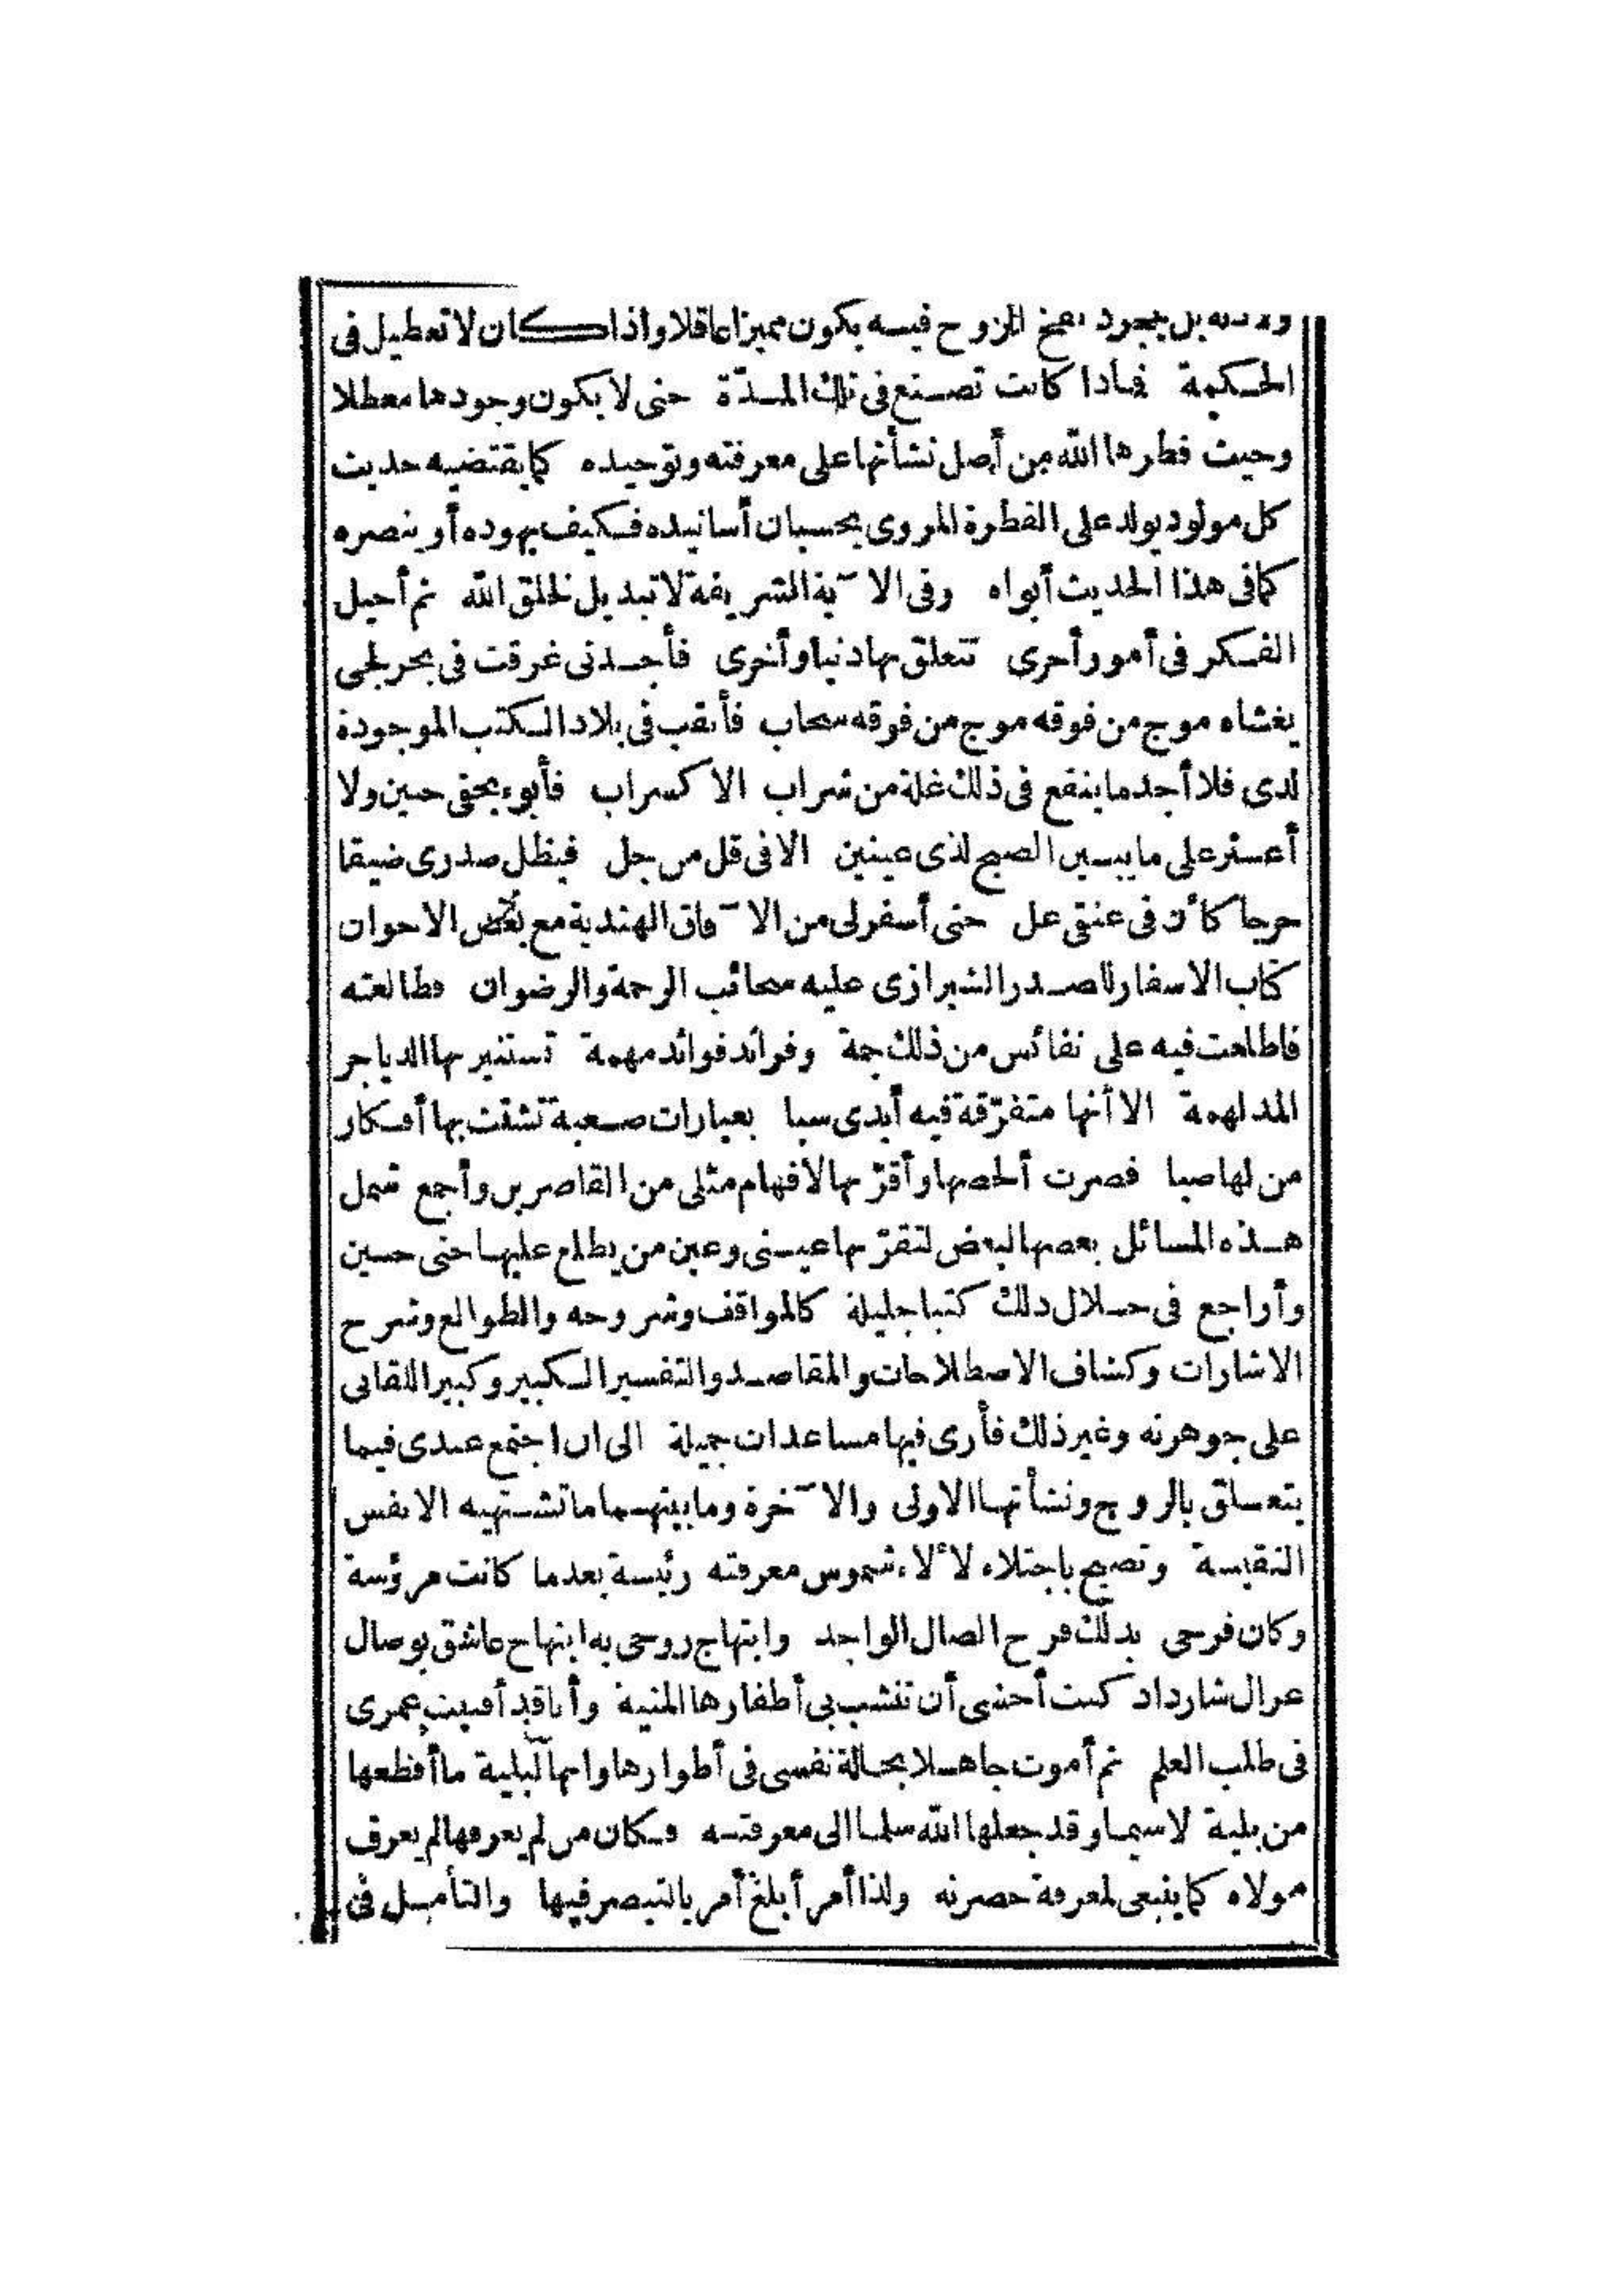 بل بمجرد نفخ الروح فيه يكون مميزا عاقلا واذا كان لا تعطيل فى
الحكمة فماذا كانت تصنع فى تلك المدّة حتى لا يكون وجودها معطلا
وحيث فطرها الله من أصل نشأتها على معرفته وتوحيده كما يقتضيه حديث
كل مولود يولد على الفطرة المروى بحسبان أسانيده فكيف يهوده أو ينصره
كما فى هذا الحديث أبواه وفى الآية الشريفة لا تبديل لخلق الله ثم أجيل
الفكر فى أمور أخرى تتعلق بها دنيا وأخرى فأجدنى غرقت فى بحر لجى
يغشاه موج من فوقه موج من فوقه سحاب فأنقب فى بلاد الكتب الموجودة
لدى فلا أجد ما ينقع فى ذلك غلة من شراب الا كسراب فأبوء بخفى حنين ولا
أعثر على ما يبين الصبح لذى عينين الا فى قل من جل فيظل صدرى ضيقا
حرجا كأن فى عنقى غل حتى أسفر لى من الآفاق الهندية مع بعض الاخوان
كتاب الاسفار للصدر الشيرازى عليه سحائب الرحمة والرضوان فطالعته
فاطلعت فيه على نفائس من ذلك جمة وفرائد فوائد مهمة تستنير بها الدياجر
المدلهمة الا أنها متفرّقة فيه أيدى سبا بعبارات صعبة تشتت بها أفكار
من لها صبا فصرت ألخصها وأقرّبها لأفهام مثلى من القاصرين وأجمع شمل
هذه المسائل بعضها لبعض لتقرّ بها عينى وعين من يطلع عليها حتى حسين
وأراجع فى خلال ذلك كتبا جليلة كالمواقف وشروحه والطوالع وشرح
الاشارات وكشاف الاصطلاحات والمقاصد والتفسير الكبير وكبير اللقانى
على جوهرته وغير ذلك فأرى فيها مساعدات جميلة الى ان اجتمع عندى فيما
يتعلق بالروح ونشأتها الاولى والآخرة وما بينهما ما تشتهيه الانفس
النفيسة وتصبح باجتلاء لألاء شموس معرفته رئيسة بعدما كانت مرؤسة
وكان فرحى بذلك فرح الضال الواجد وابتهاج روحى به ابتهاج عاشق بوصال
غزال شارد اذ كنت أخشى أن تنشب بى أظفارها المنية وأنا قد أفنيت عمرى
فى طلب العلم ثم أموت جاهلا بحالة نفسى فى أطوارها وانها لبلية ما أفظعها
من بلية لا سيما وقد جعلها الله سلما الى معرفته فكان من لم يعرفها لم يعرف
مولاه كما ينبغى لمعرفة حضرته ولذا أمر أبلغ أمر بالتبصر فيها والتأمل فى